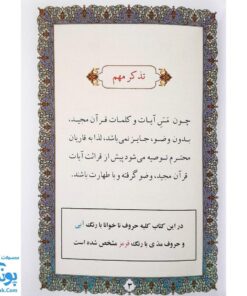 تذکر مهم
چـون مَسّ آیـات و کلمـات قـرآن مجیـد،
بـدون وضـو، جـایز نمی‌باشد، لذا به قاریان
محترم توصیه می‌شود پیش از قرائت آیات
قرآن مجید، وضو گرفته و با طهارت باشند.
در این کتاب کلیه حروف نا خوانا با رنگ آبی
و حروف مدّی با رنگ قرمز مشخص شده است
۳